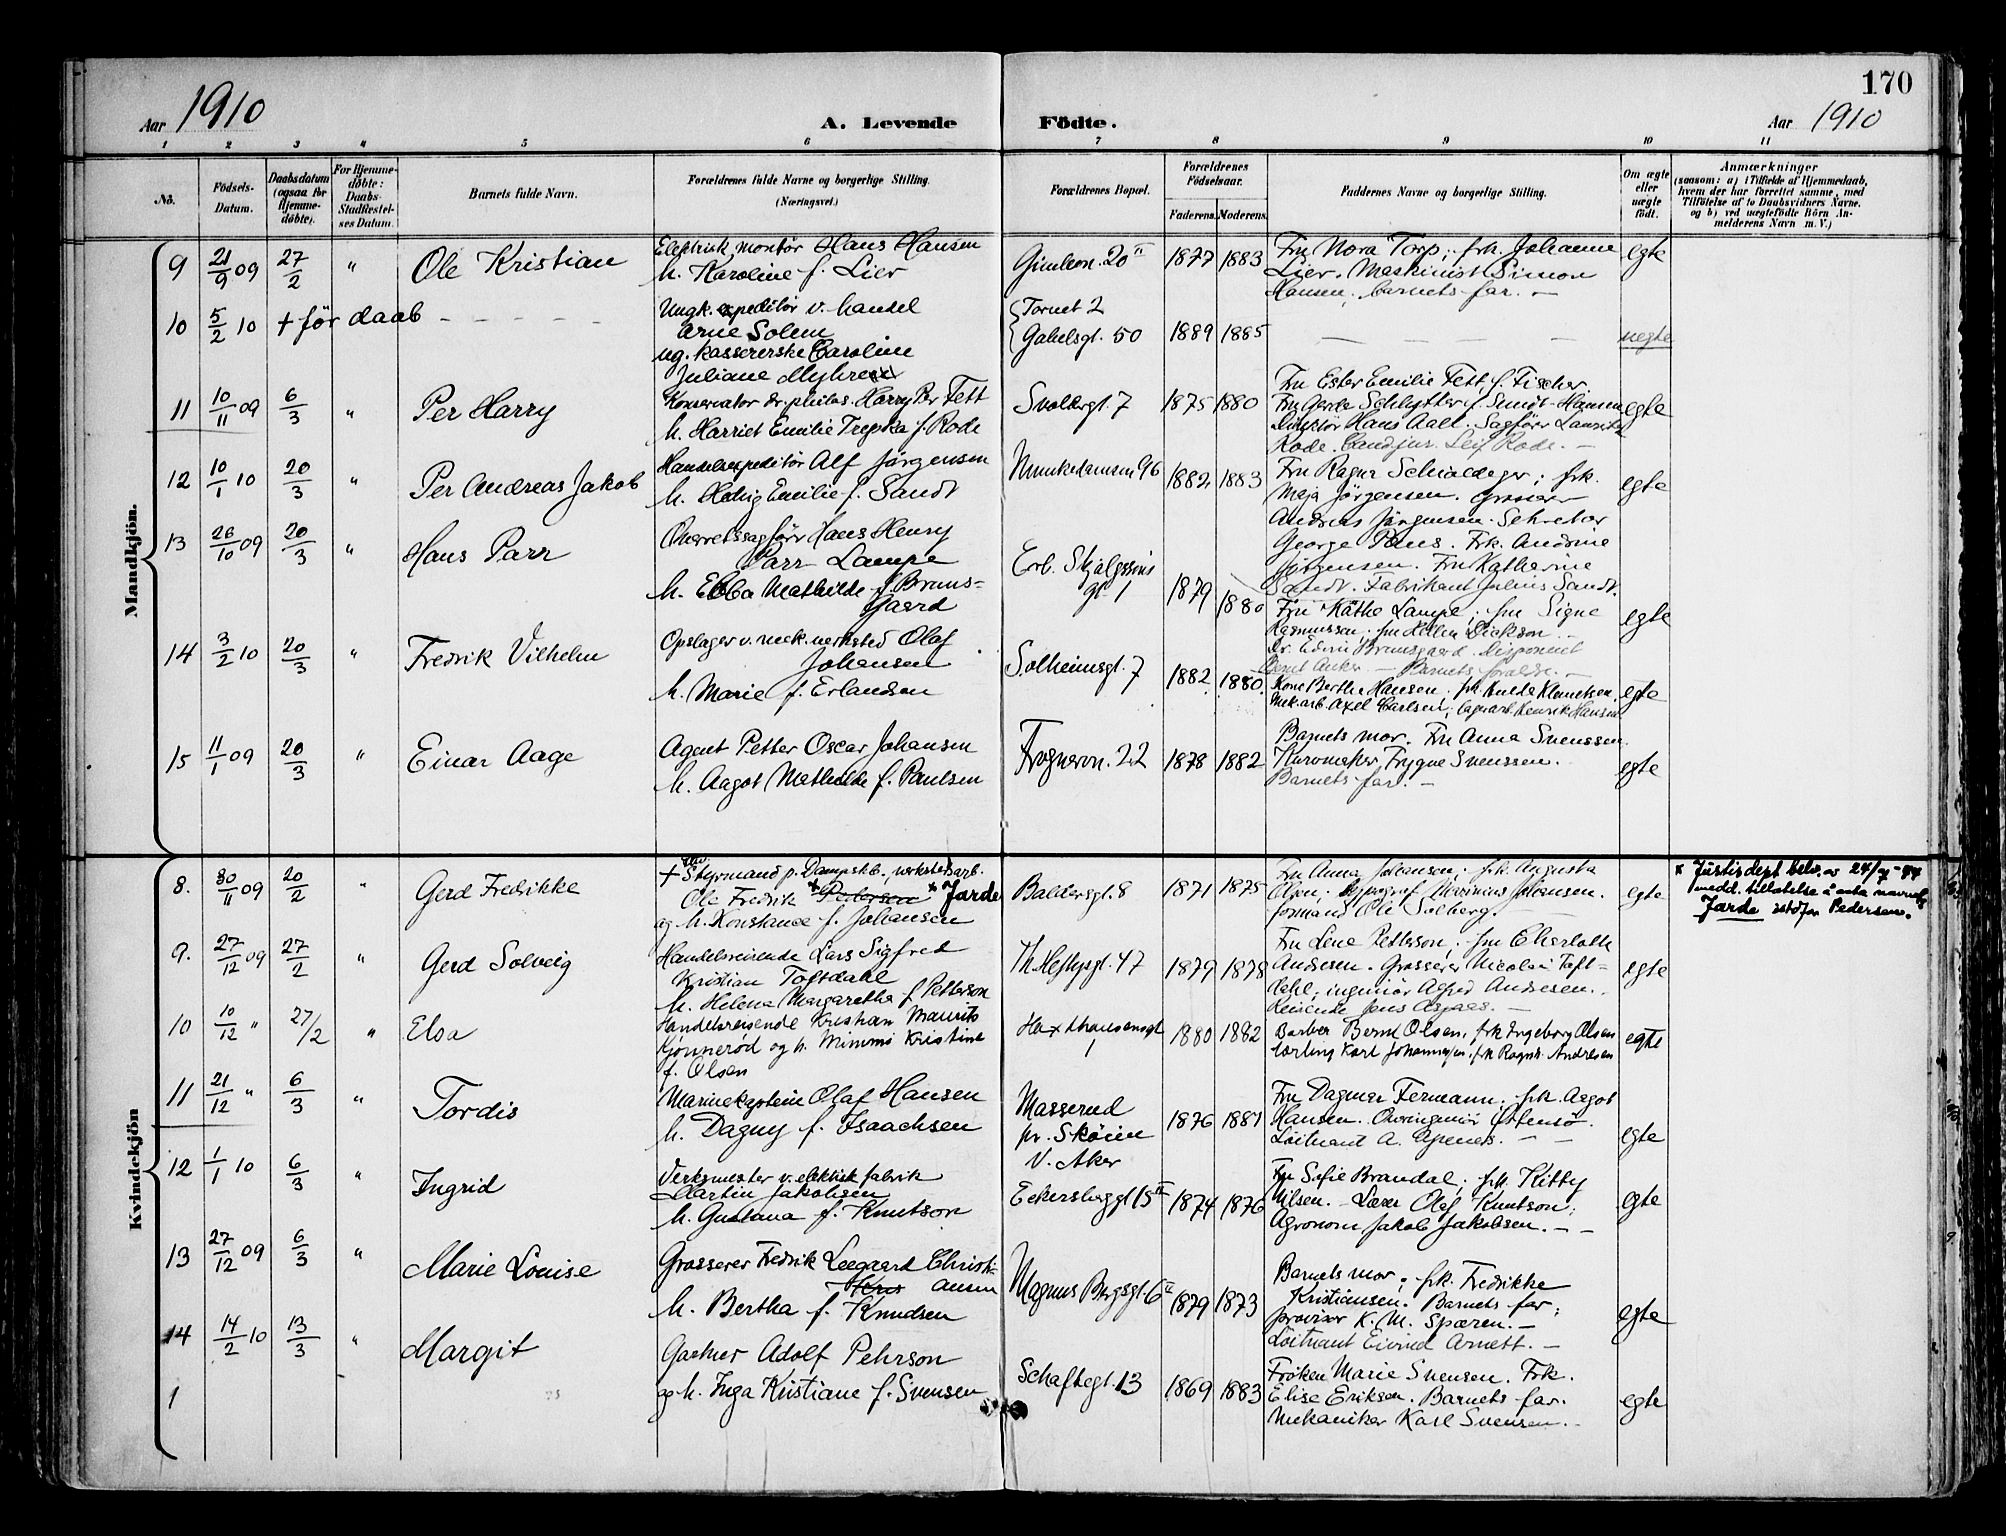 170
Aar 1910
A. Levende
Födte.
Aar 1910
1 2 3 4 5 6 7 8 9 10 11
No.
Födsels-Datum.
Daabsdatum (ogsaa for Hjemmedöbte).
For Hjemmedöbte: Daabs-Stadfestelses Datum.
Barnets fulde Navn.
Forældrenes fulde Navne og borgerlige Stilling.
(Næringsvei.)
Forældrenes Bopæl.
Forældrenes Födselsaar.
Faderens. Moderens.
Faddernes Navne og borgerlige Stilling.
Om ægte eller uægte födt.
Anmærkninger
(saasom: a) i Tilfælde af Hjemmedaab,
hvem der har forrettet samme, med
Tilföielse af to Daabsvidners Navne.
og b) ved uegtefödte Börn Anmelderens Navn m. V.)
Mandkjön.
9 21/9 09 27/2 " Ole Kristian
Elektrisk montör Hans Hansen
h. Karoline f. Lier
Gimleon. 20 II 1877 1883
Fru Nora Torp; frk. Johanne
Lier. Maskinist Simon
Hansen; barnets far. —
egte
10 5/2 10 + för daab - - - - -
Ungk. expeditör v. handel
Arne Solem
ug. kassererske Caroline
Juliane Myhre
Tornet 2
Gabelsgt. 50 1889 1885 — — — — uegte
11 10/11 09 6/3 " Per Harry
Konservator dr. philos. Harry Per Fett
h. Harriet Emilie Trepka f. Rode
Svoldergt. 7 1875 1880
Fru Ester Emilie Fett f. Fischer.
Fru Gerda Schlytter f. Sundt-Hansen
Direktör Hans Aall. Sagförer Lauritz
Rode. Cand jur. Leif Rode. —
egte
12 10/1 10 20/3 " Per Andreas Jakob
Handelsexpeditör Alf Jörgensen
h. Hedvig Emilie f. Sandt
Munkedamsvn 96 1882 1883
Fru Ragna ; frk.
Maja Jörgensen. Grosserer
Andreas Jörgensen. Sekretær
George . Frk. Andrine
Jörgensen. Fru Katherine
Sandt. Fabrikant Julius Sandt.
egte
13 26/10 09 20/3 " Hans Parr
Overretssagförer Hans Henry
Parr Lampe
h. Ebba Mathilde f. Bruusgaard
Erl. Skjalgssöns
gt 1 1879 1880
Fru Käthe Lampe; fru Signe
Rasmussen; fru Dickson. —
Dr. Edvin Bruusgaard. Disponent
Bernt Anker — Barnets forældre. —
egte
14 3/2 10 20/3 " Fredrik Vilhelm
Opslager v. mek. verksted Olaf
Johansen
h. Marie f. Erlandsen
Solheimsgt. 7 1882 1880
Kone Berthe Hansen; frk. Hulda Klemetsen.
Mek. arb Axel Carlsen; lagerarb. Henrik Hansen
egte
15 11/1 09 20/3 " Einar Aage
Agent Petter Oscar Johansen
h. Aagot Mathilde f. Paulsen
Frognervn. 22 1878 1882
Barnets mor. Fru Anna Svenssen.
Trygve Svenssen.
Barnets far. —
egte
Kvindekjön
8. 30/11 09 20/2 " Gerd Fredrikke
+ Styrmand p. Dampskb. verkstedarb.
Ole Fredrik + Pedersen x Jarde
og h. Konstance f. Johansen
Baldersgt. 8 1871 1875
Fru Anna Johansen; frk. Augusta
Olsen; typograf Johansen.
formand Ole Solberg. —
egte
x Justisdept. bev. av 24/
medd. tillatelse å anta navnet
Jarde istdfor Pedersen.
9. 27/12 09 27/2 " Gerd Solveig
Handelsreisende Lars Sigfred
Kristian Toftdahl
h. Helena Margaretha f. Petterson
Th. Heftysgt. 47 1879 1878
Fru Lene Petterson; fru Charlotte
Andresen. Grosserer Nicolai Toftdahl;
ingeniör Alfred Andresen.
Reisende Jens . —
egte
10 10/12 " 27/2 " Elsa
Handelsreisende Kristian Maurits
Kjønnerød og h. Mimmi Kristine
f. Olsen
Haxthausensgt
1 1880 1882
Barber Bernt Olsen, frk Ingeborg Olsen
Lærling Karl Johannesen, frk Ragnh. Andresen
egte
11 21/12 " 6/3 " Tordis
Marinekaptein Olaf Hansen
h. Dagny f. Isaachsen
Masserud
pr. Sköien
V. Aker 1876 1881
Fru Dagmar Fermann. frk. Aagot
Hansen. Overingeniör Ostensö.
Löitnant A. . — —
egte
12 1/1 10 6/3 " Ingrid
Verksmester v. elektrisk fabrik
Martin Jakobsen
h. Gustava f. Knutson
Eckersbergsgt 15 II 1874 1876
Fru Sofie Brandal; frk. Kitty
Nilsen. — Lærer Olaf Knutson;
Agronom Jakob Jakobsen. — —
egte
13 27/12 09 6/3 " Marie Louise
Grosserer Fredrik Leegaard Christiansen
h. Bertha f. Knudsen
Magnus Bergsgt. 6 II 1879 1873
Barnets mor; frk. Fredrikke
Kristiansen. Barnets far;
provisor K. M. Spæren. —
Löitnant Eivind Arnett. —
egte
14 14/2 10 13/3 " Margit
Gartner Adolf Pehrson
og h. Inga Kristiane f. Svensen
Schaftegt. 13 1869 1883
Fröken Marie Svensen. Frk.
Elise Eriksen. Barnets far.
Mekaniker Karl Svensen. —
egte
1